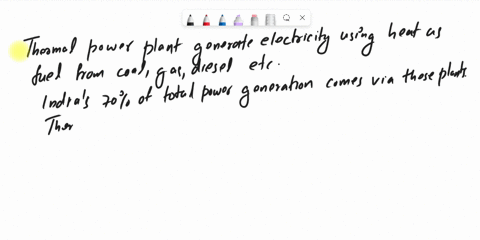 Thermal power plant generate electricity using heat as
fuel from coal, gas, diesel etc.
India's 70% of total power generation comes via these plants.
Ther